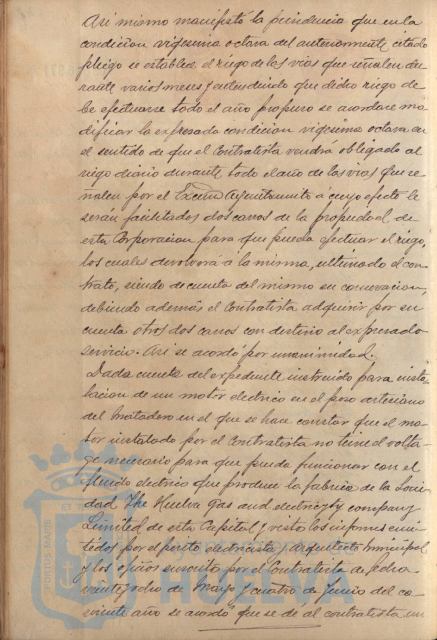 Asi mismo manifestó la presidencia que en la
condicion vigesima octava del anteriormente citado
pliego se establece el riego de las vias que señalen du-
rante varios meses y entendiendo que dicho riego de-
be efectuarse todo el año propuso se acordara mo-
dificar la expresada condicion vigesima octava en
el sentido de que el Contratista vendrá obligado al
riego diario durante todo el año de las vias que se-
ñalen por el Excmo Ayuntamiento á cuyo efecto le
serán facilitados dos carros de la propiedad de
esta Corporacion para que pueda efectuar el riego,
los cuales devolverá á la misma, ultimado el con-
trato, siendo de cuenta del mismo su conservacion,
debiendo además el Contratista adquirir por su
cuenta otros dos carros con destino al expresado
servicio. Asi se acordó por unanimidad.
Dada cuenta del expediente instruido para insta-
lacion de un motor electrico en el pozo artesiano
del Matadero en el que se hace constar que el mo-
tor instalado por el Contratista no tiene el volta-
ge necesario para que pueda funcionar con el
fluido electrico que produce la fabrica de la Socie-
dad The Huelva Gas and electricity company
Limited de esta Capital y visto los informes emi-
tidos por el perito electricista y arquitecto municipal
y los oficios suscrito por el Contratista de fecha
veinte y ocho de Mayo y cuatro de Junio del co-
rriente año se acordó que se de al contratista un
PORTUS MARIS
HUELVA